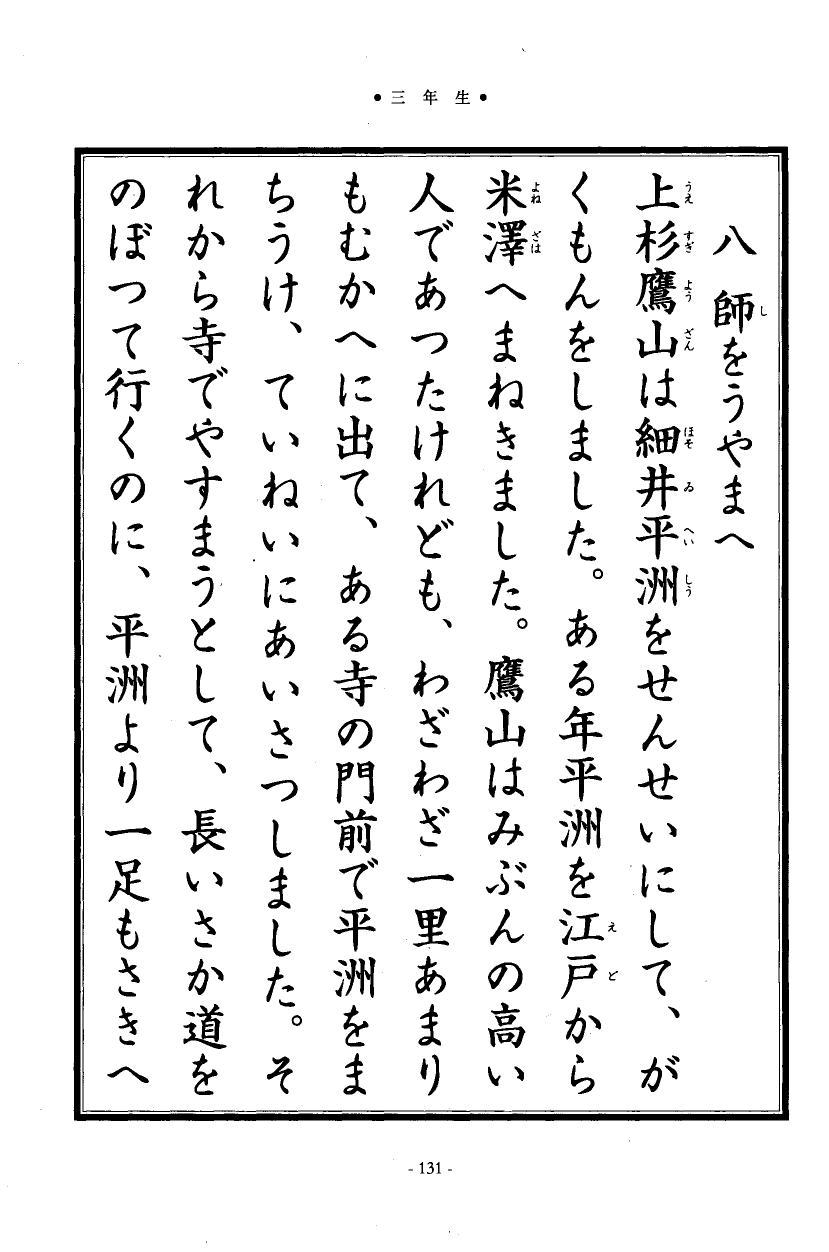 ●三年生●
八 師をうやまへ
上杉鷹山は細井平洲をせんせいにして、が
くもんをしました。ある年平洲を江戸から
米澤へまねきました。鷹山はみぶんの高い
人であつたけれども、わざわざ一里あまり
もむかへに出て、ある寺の門前で平洲をま
ちうけ、ていねいにあいさつしました。そ
れから寺でやすまうとして、長いさか道を
のぼつて行くのに、平洲より一足もさきへ
- 131 -